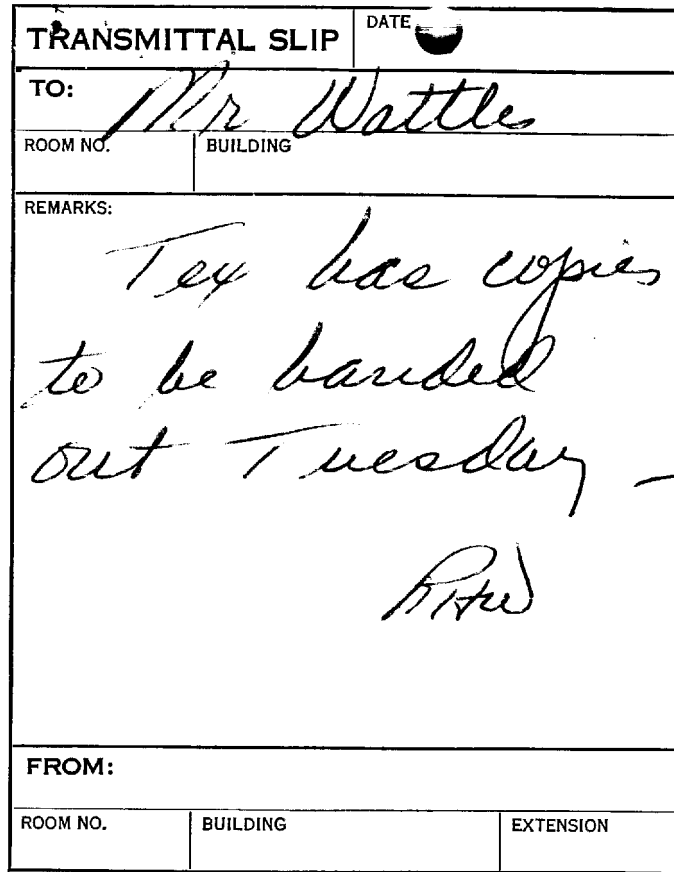 TRANSMITTAL SLIP
DATE
TO: Mr Wattles
ROOM NO. BUILDING
REMARKS:
Tex has copies
to be handed
out Tuesday —
RHW
FROM:
ROOM NO. BUILDING EXTENSION